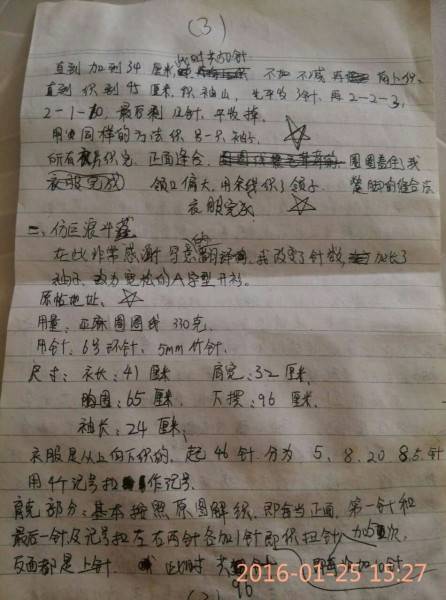 (3)
此时共50针
直到加到34厘米, 不加不减 向上织,
直到织到45厘米, 织袖山, 先平收3针, 再2-2-3,
2-1-10, 最后剩12针, 平收掉。
用同样的方法织另一只袖子。
所有 织完, 正面缝合,
衣服完成 领口偏大, 用余线织了领子,
衣服完成
二、仿巨浪斗篷
在此非常感谢 翻译, 我改变了针数, 加长了
袖子, 改为宽松的A字型开衫。
原帖地址:
用量: 亚麻圈圈线 330克,
用针: 6号环针, 5mm竹针,
尺寸: 衣长: 41厘米 肩宽: 32厘米,
胸围: 65厘米, 下摆: 96厘米,
袖长: 24厘米,
衣服是从上向下织的, 起46针 分为 5, 8, 20 8, 5针
用4个记号扣 作记号,
肩部分: 基本按照原图解织, 即每当正面, 第一针和
最后一针及记号扣左右两针各加1针即织扭针, 加5次,
反面都是上针, 此时 共 针 即每次加10针
96
2016-01-25 15:27